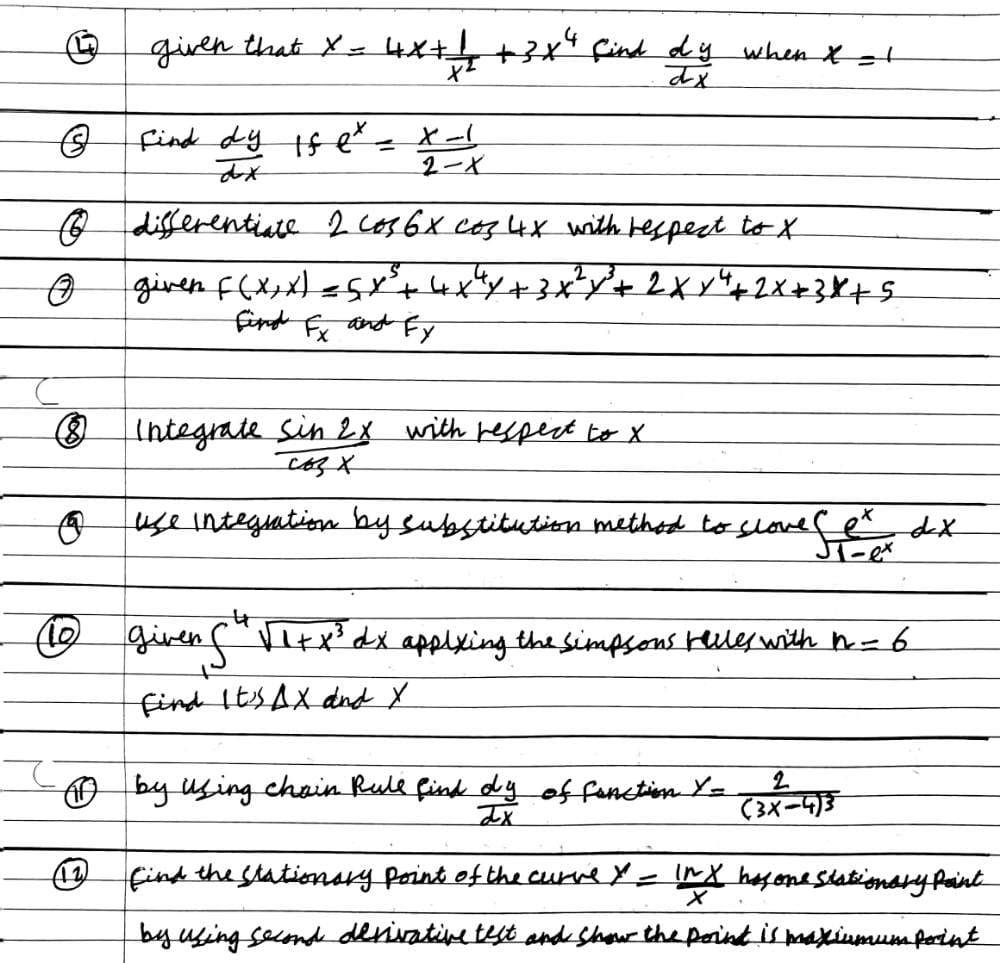 ④ given that x = 4x + 1/x² + 3x⁴ find dy/dx when x = 1
⑤ Find dy/dx If eˣ = x-1/2-x
⑥ differentiate 2 cos 6x cos 4x with respect to x
⑦ given F(x,x) = 5x⁵ + 4x⁴y + 3x²y³ + 2xy⁴ + 2x + 3y + 5
find Fx and Fy
⑧ Integrate sin 2x/cos x with respect to x
⑨ use integration by substitution method to slove ∫ eˣ/1-eˣ dx
⑩ given ∫₁⁴ √1+x³ dx applying the simpsons rules with n = 6
find It's Δx and y
⑪ by using chain Rule find dy/dx of function Y = 2/(3x-4)³
⑫ find the stationary point of the curve Y = ln x/x has one stationary Point
by using second derivative test and show the point is maxiumum point